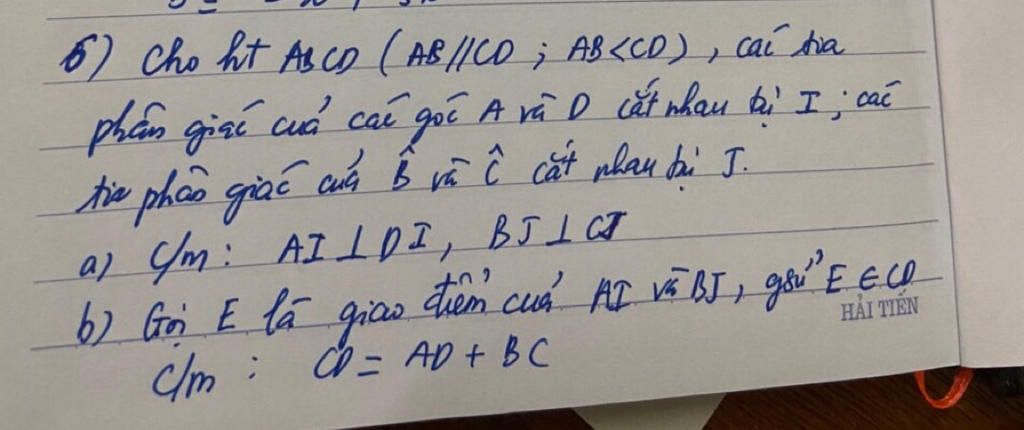 5) Cho ht ABCD (AB//CD ; AB<CD), các tia
phân giác của các góc A và D cắt nhau tại I ; các
tia phân giác của B̂ và Ĉ cắt nhau tại J.
a) C/m : AI ⊥ DI, BJ ⊥ CJ
b) Gọi E là giao điểm của AI và BJ, gsử E ∈ CD
HẢI TIẾN
C/m : CD = AD + BC